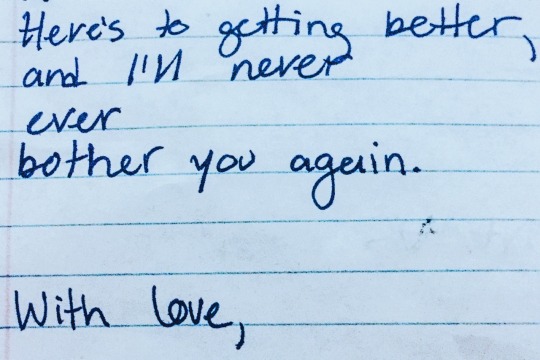 Here's to getting better,
and I'll never
ever
bother you again.
With love,